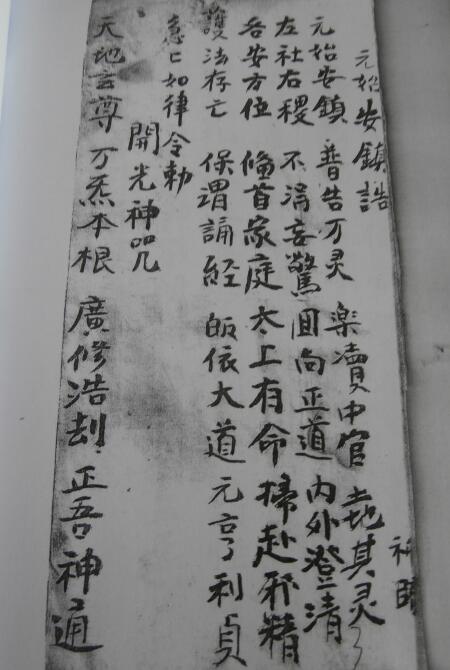 元始安鎮誥
元始安鎮 普告万灵 楽瀆中官 土地其灵
左社右稷 不涓妄驚 囬向正道 内外澄清
各安方位 俻首家庭 太上有命 掃赴邪精
護法存亡 保謂誦經 皈依大道 元亨利貞
急匕如律令勅
開光神咒
天地玄尊 万炁本根 廣修浩刼 正吾神通